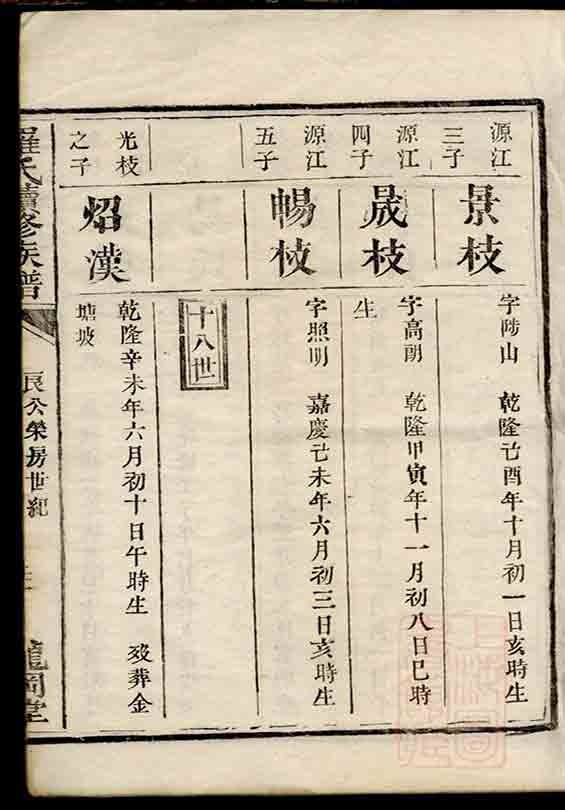 源江
三子
景枝
字陟山 乾隆己酉年十月初一日亥時生
源江
四子
晟枝
字高朗 乾隆甲寅年十一月初八日巳時
生
源江
五子
暢枝
字照明 嘉慶己未年六月初三日亥時生
十八世
光枝
之子
炤漢
乾隆辛未年六月初十日午時生 歿葬金
塘坡
羅氏續修族譜
良公榮房世紀
龍岡堂